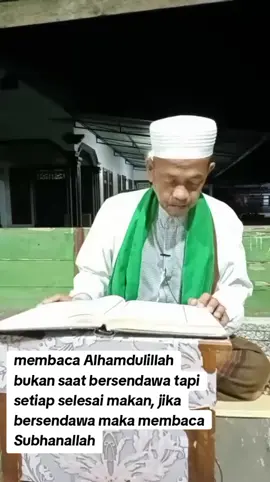 membaca Alhamdulillah
bukan saat bersendawa tapi
setiap selesai makan, jika
bersendawa maka membaca
Subhanallah